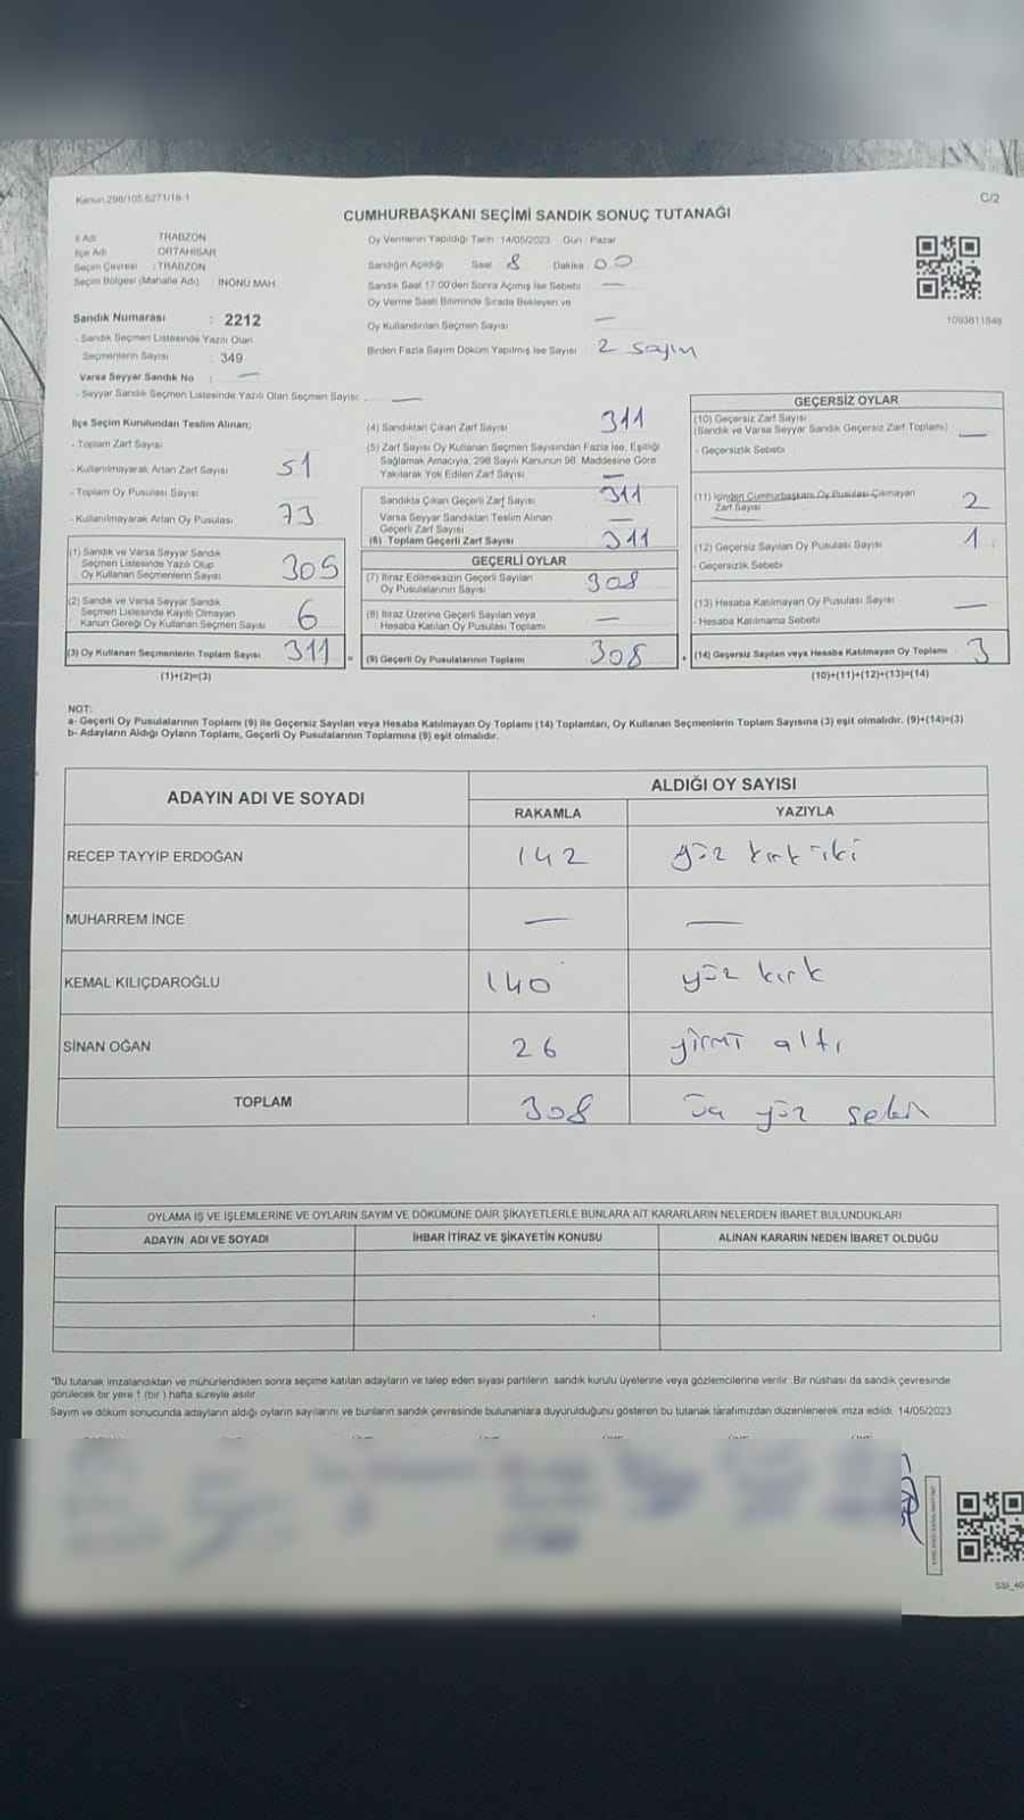 Kanun 298/105 6271/18-1
C/2
CUMHURBAŞKANI SEÇİMİ SANDIK SONUÇ TUTANAĞI
İl Adı : TRABZON
İlçe Adı : ORTAHİSAR
Seçim Çevresi : TRABZON
Seçim Bölgesi (Mahalle Adı) : İNÖNÜ MAH.
Sandık Numarası : 2212
- Sandık Seçmen Listesinde Yazılı Olan
Seçmenlerin Sayısı : 349
Varsa Seyyar Sandık No : —
- Seyyar Sandık Seçmen Listesinde Yazılı Olan Seçmen Sayısı : —
Oy Vermenin Yapıldığı Tarih : 14/05/2023 Gün : Pazar
Sandığın Açıldığı Saat 8 Dakika 00
Sandık Saat 17:00'den Sonra Açılmış İse Sebebi —
Oy Verme Saati Bitiminde Sırada Bekleyen ve
Oy Kullandırılan Seçmen Sayısı —
Birden Fazla Sayım Döküm Yapılmış İse Sayısı 2 sayım
1093611848
İlçe Seçim Kurulundan Teslim Alınan;
- Toplam Zarf Sayısı
- Kullanılmayarak Artan Zarf Sayısı 51
- Toplam Oy Pusulası Sayısı
- Kullanılmayarak Artan Oy Pusulası 73
(1) Sandık ve Varsa Seyyar Sandık
Seçmen Listesinde Yazılı Olup
Oy Kullanan Seçmenlerin Sayısı 305
(2) Sandık ve Varsa Seyyar Sandık
Seçmen Listesinde Kayıtlı Olmayan
Kanun Gereği Oy Kullanan Seçmen Sayısı 6
(3) Oy Kullanan Seçmenlerin Toplam Sayısı 311 =
(1)+(2)=(3)
(4) Sandıktan Çıkan Zarf Sayısı 311
(5) Zarf Sayısı Oy Kullanan Seçmen Sayısından Fazla İse, Eşitliği
Sağlamak Amacıyla, 298 Sayılı Kanunun 98. Maddesine Göre
Yakılarak Yok Edilen Zarf Sayısı —
Sandıkta Çıkan Geçerli Zarf Sayısı 311
Varsa Seyyar Sandıktan Teslim Alınan
Geçerli Zarf Sayısı —
(6) Toplam Geçerli Zarf Sayısı 311
GEÇERLİ OYLAR
(7) İtiraz Edilmeksizin Geçerli Sayılan
Oy Pusulalarının Sayısı 308
(8) İtiraz Üzerine Geçerli Sayılan veya
Hesaba Katılan Oy Pusulası Toplamı —
(9) Geçerli Oy Pusulalarının Toplamı 308 +
GEÇERSİZ OYLAR
(10) Geçersiz Zarf Sayısı
(Sandık ve Varsa Seyyar Sandık Geçersiz Zarf Toplamı) —
- Geçersizlik Sebebi
(11) İçinden Cumhurbaşkanı Oy Pusulası Çıkmayan
Zarf Sayısı 2
(12) Geçersiz Sayılan Oy Pusulası Sayısı 1
- Geçersizlik Sebebi
(13) Hesaba Katılmayan Oy Pusulası Sayısı —
- Hesaba Katılmama Sebebi
(14) Geçersiz Sayılan veya Hesaba Katılmayan Oy Toplamı 3
(10)+(11)+(12)+(13)=(14)
NOT:
a- Geçerli Oy Pusulalarının Toplamı (9) ile Geçersiz Sayılan veya Hesaba Katılmayan Oy Toplamı (14) Toplamları, Oy Kullanan Seçmenlerin Toplam Sayısına (3) eşit olmalıdır. (9)+(14)=(3)
b- Adayların Aldığı Oyların Toplamı, Geçerli Oy Pusulalarının Toplamına (9) eşit olmalıdır.
ADAYIN ADI VE SOYADI
ALDIĞI OY SAYISI
RAKAMLA YAZIYLA
RECEP TAYYİP ERDOĞAN 142 yüz kırk iki
MUHARREM İNCE — —
KEMAL KILIÇDAROĞLU 140 yüz kırk
SİNAN OĞAN 26 yirmi altı
TOPLAM 308 üç yüz sekiz
OYLAMA İŞ VE İŞLEMLERİNE VE OYLARIN SAYIM VE DÖKÜMÜNE DAİR ŞİKAYETLERLE BUNLARA AİT KARARLARIN NELERDEN İBARET BULUNDUKLARI
ADAYIN ADI VE SOYADI İHBAR İTİRAZ VE ŞİKAYETİN KONUSU ALINAN KARARIN NEDEN İBARET OLDUĞU
*Bu tutanak imzalandıktan ve mühürlendikten sonra seçime katılan adayların ve talep eden siyasi partilerin sandık kurulu üyelerine veya gözlemcilerine verilir. Bir nüshası da sandık çevresinde
görülecek bir yere 1 (bir) hafta süreyle asılır.
Sayım ve döküm sonucunda adayların aldığı oyların sayılarını ve bunların sandık çevresinde bulunanlara duyurulduğunu gösteren bu tutanak tarafımızdan düzenlenerek imza edildi. 14/05/2023